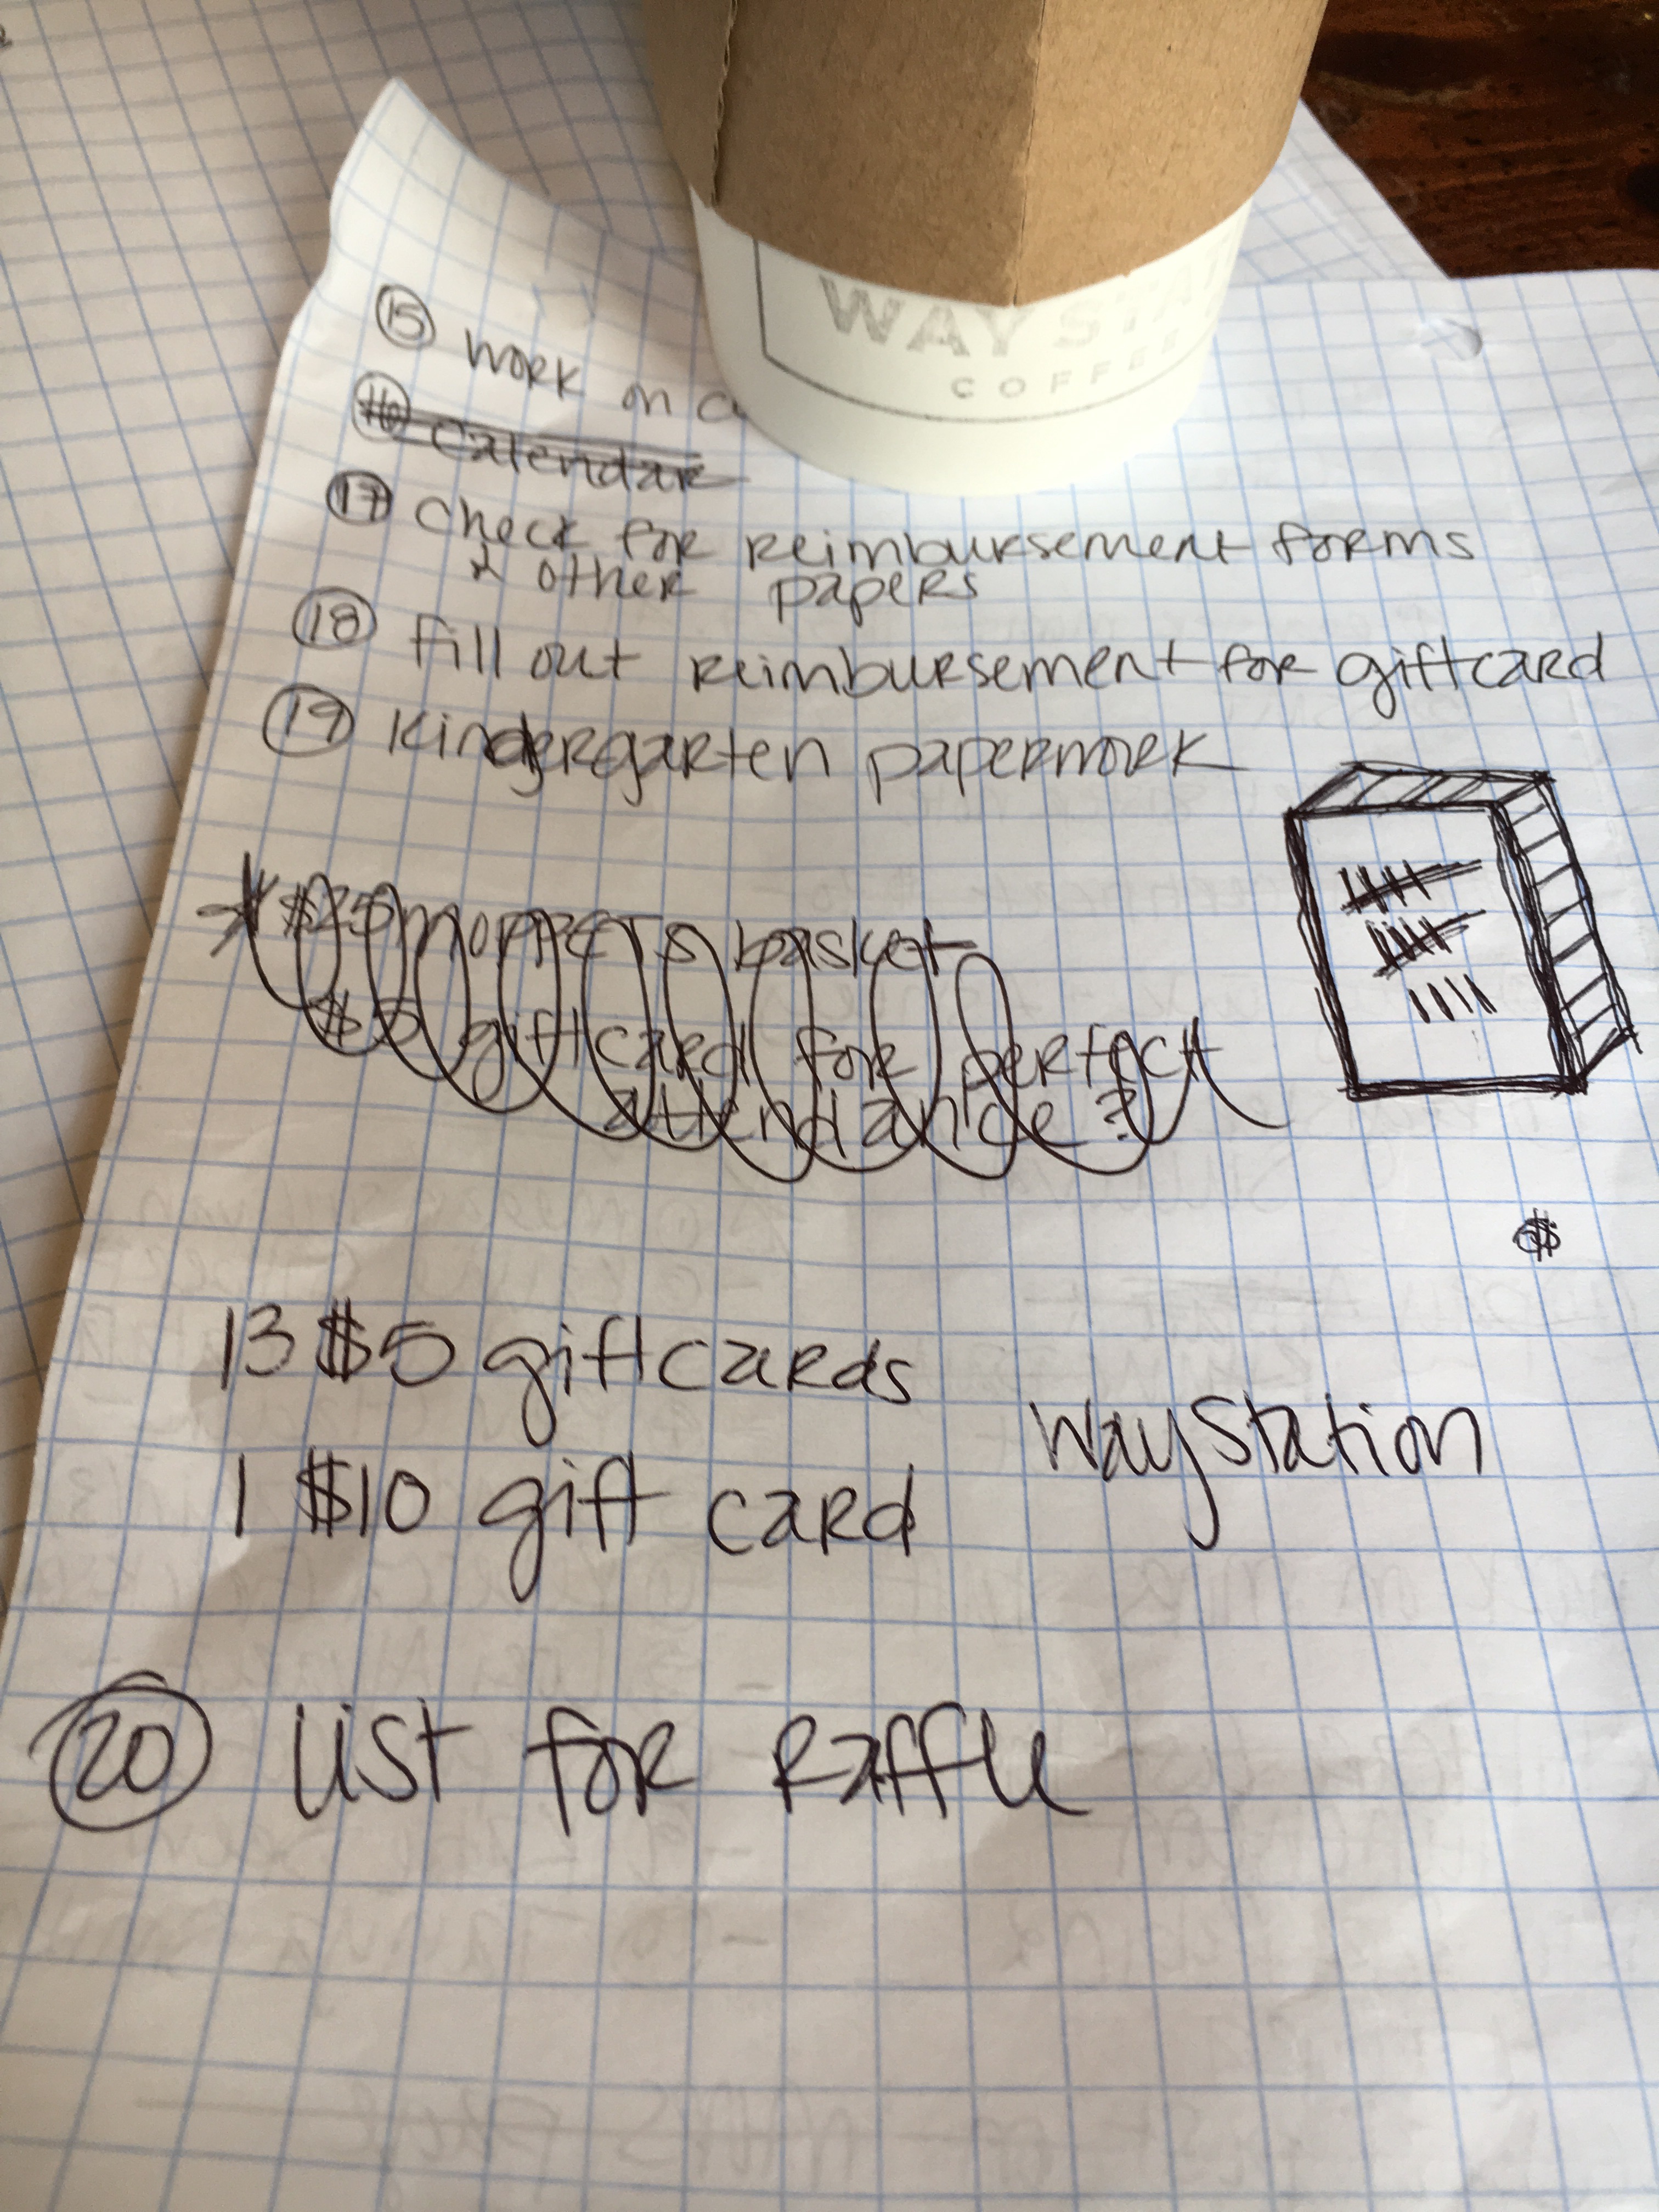 WAY STA
COFFEE
15 Work on
16 Calendar
17 Check for reimbursement forms
& other papers
18 Fill out reimbursement for giftcard
19 Kindergarten paperwork
$25 MOPPETS basket
$5 giftcard for perfect
attendance?
$
13 $5 giftcards
Way Station
1 $10 gift card
20 List for Raffle